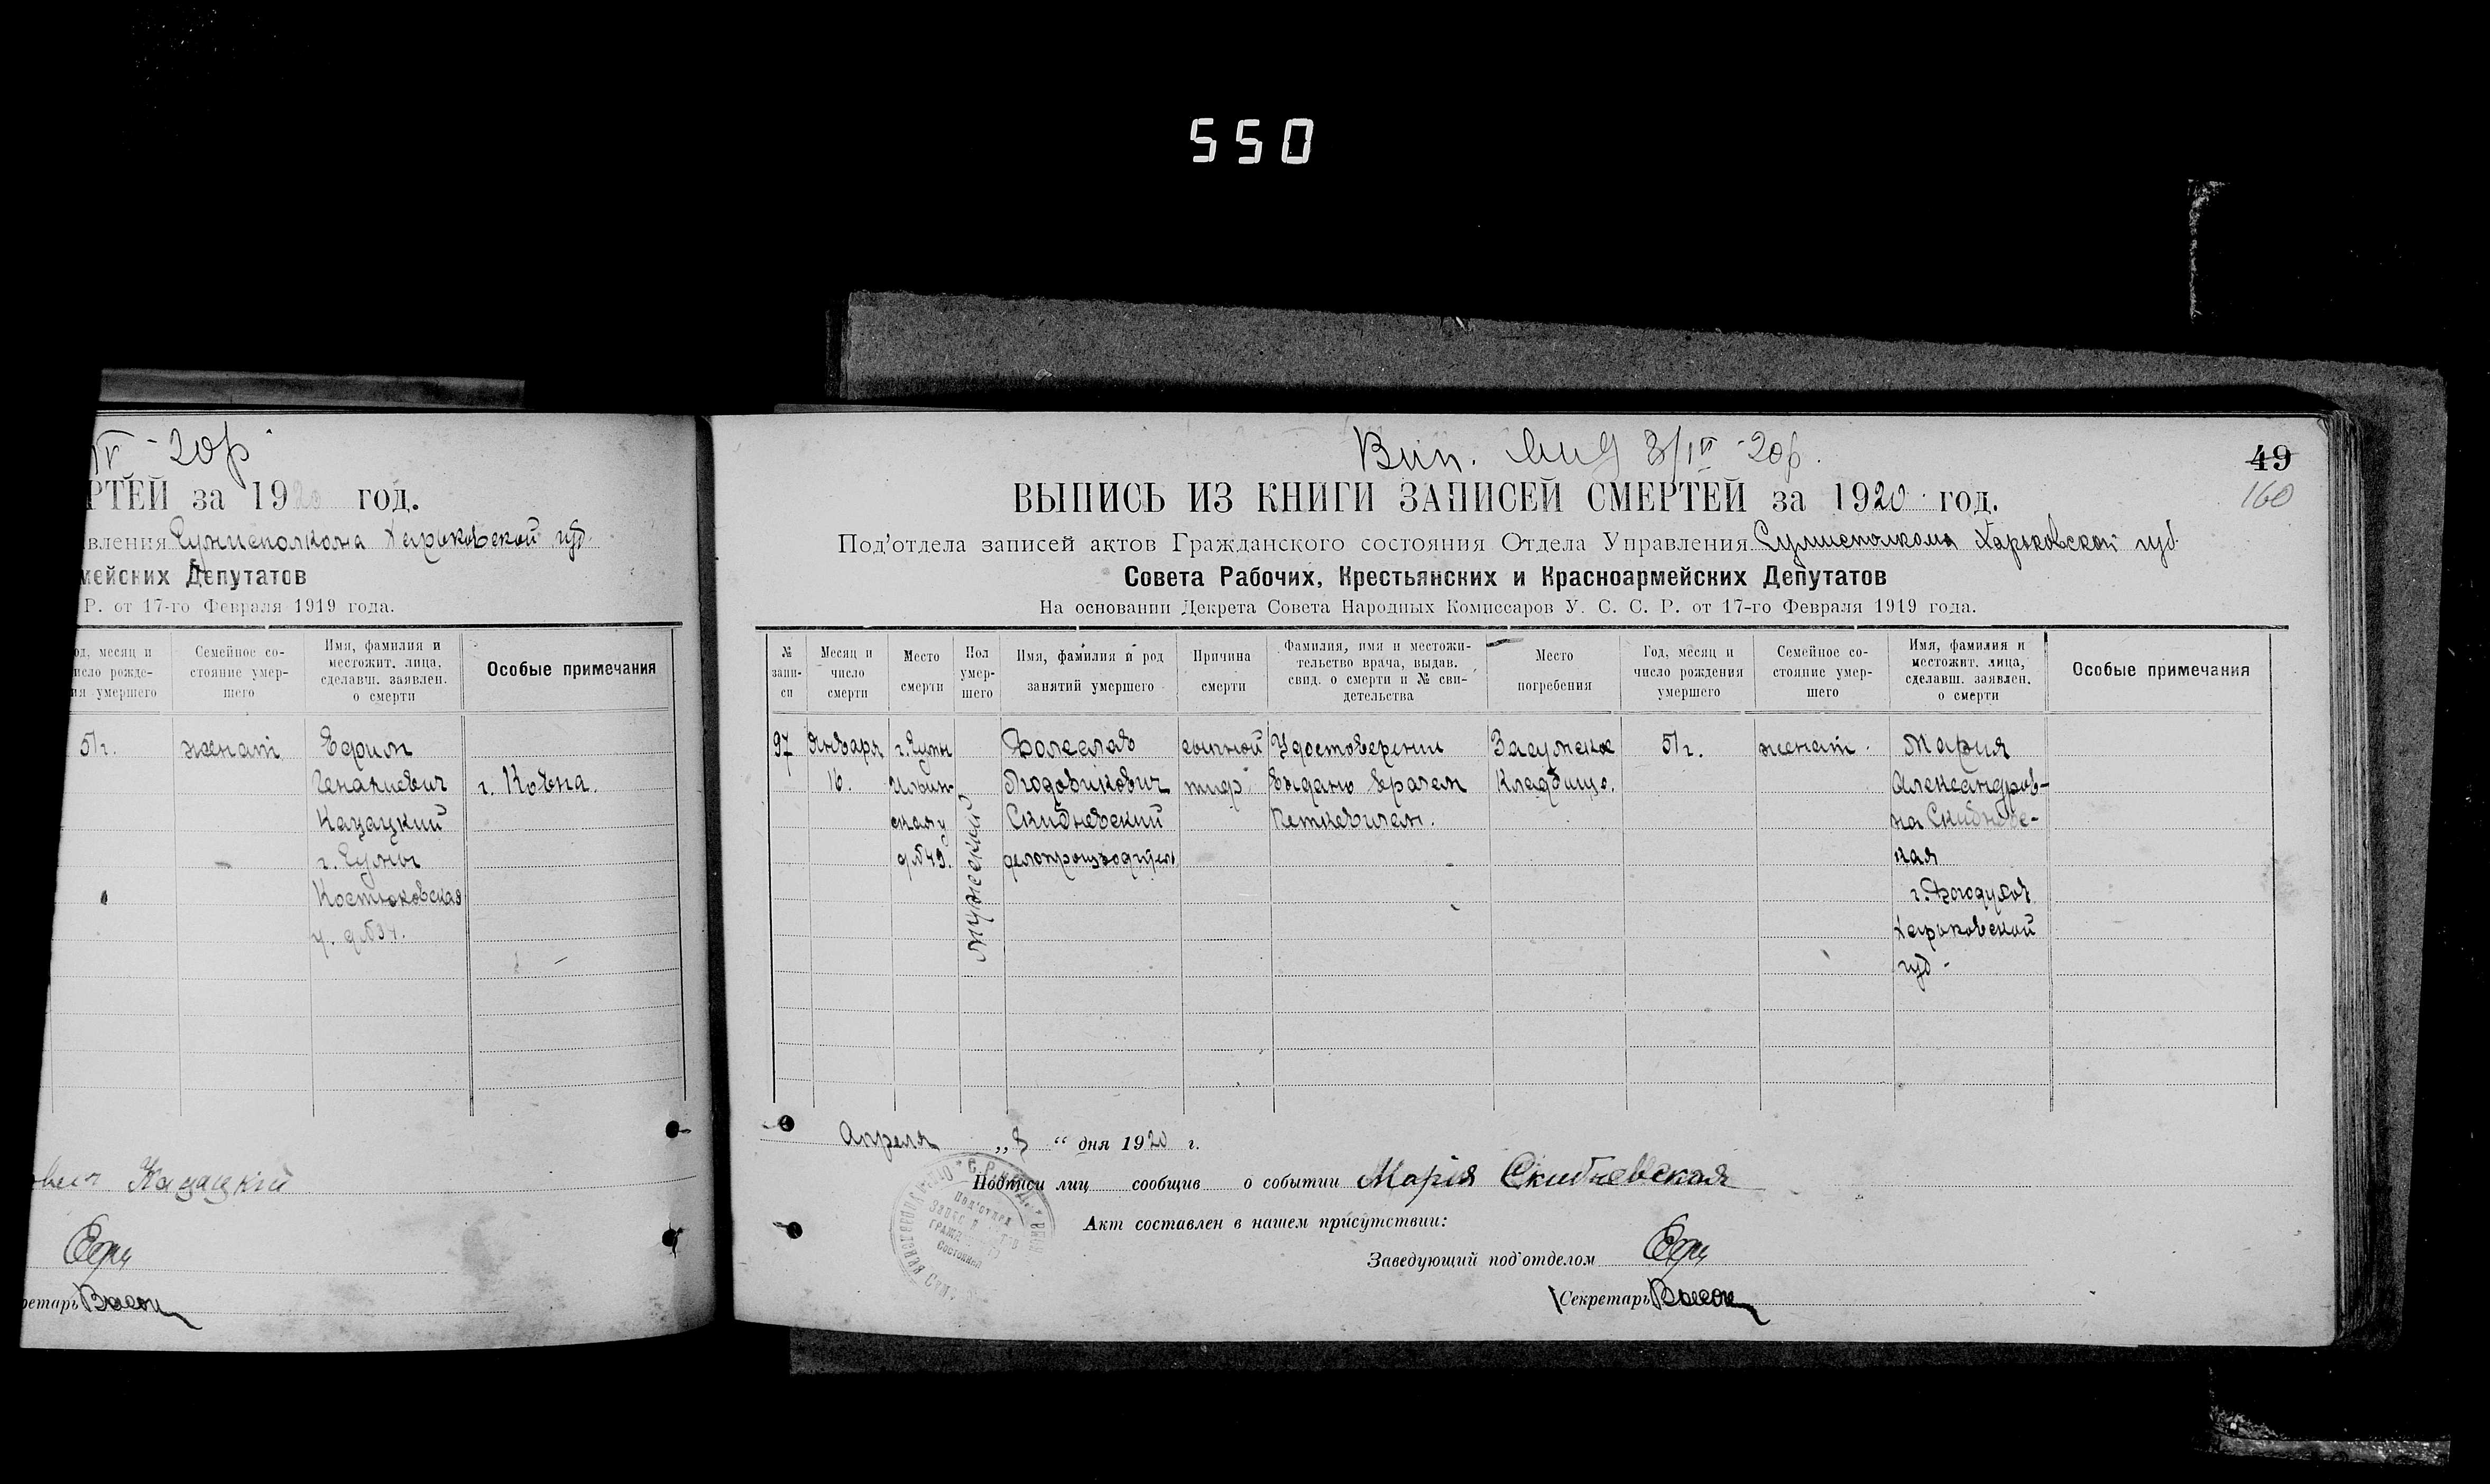 550
IV - 20 р
РТЕЙ за 1920 год.
вления Сумисполкома Харьковской губ.
мейских Депутатов
Р. от 17-го Февраля 1919 года.
од, месяц и
исло рожде-
ия умершего
Семейное со-
стояние умер-
шего
Имя, фамилия и
местожит. лица,
сделавш. заявлен.
о смерти
Особые примечания
51 г. женат Ефим
г. Ковна.
Кацацкий
г. Сумы
Костюковская
у. д №34.
Кацацкій
ретарь
Вип. 8/IV - 20 р.
49
160
ВЫПИСЬ ИЗ КНИГИ ЗАПИСЕЙ СМЕРТЕЙ за 1920 год.
Под'отдела записей актов Гражданского состояния Отдела Управления Сумисполкома Харьковской губ.
Совета Рабочих, Крестьянских и Красноармейских Депутатов
На основании Декрета Совета Народных Комиссаров У. С. С. Р. от 17-го Февраля 1919 года.
№
запи-
си
Месяц и
число
смерти
Место
смерти
Пол
умер-
шего
Имя, фамилия и род
занятий умершего
Причина
смерти
Фамилия, имя и местожи-
тельство врача, выдав.
свид. о смерти и № сви-
детельства
Место
погребения
Год, месяц и
число рождения
умершего
Семейное со-
стояние умер-
шего
Имя, фамилия и
местожит. лица,
сделавш. заявлен.
о смерти
Особые примечания
97
Января
16.
г. Сумы
Ильин-
ская у
д №49.
Мужеский
Болеслав
Людовикович
Скибневский
делопроизводитель
сыпной
тиф
Удостоверение
выдано врачем
Петкевичем.
Засумское
Кладбище.
51 г.
женат.
Мария
Александров-
на Скибневс-
кая
г. Богодухов
Харьковской
губ -
Апреля „8 “ дня 1920 г.
Подписи лиц сообщив о событии Марія Скибневская
Акт составлен в нашем присутствии:
Заведующий под'отделом
Секретарь
Под'отдел
Состояния